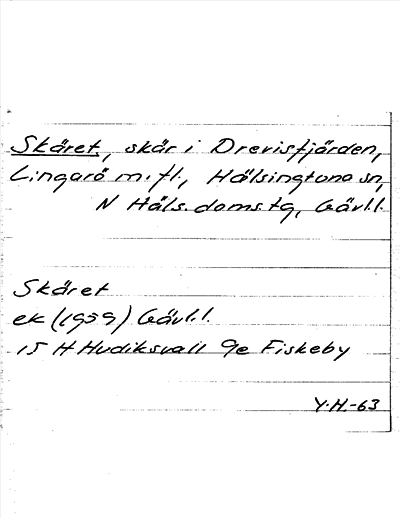 Skäret, skär i Drevisfjärden,
Lingarö m.fl., Hälsingtuna sn,
N Häls.doms.tg, Gävl.l.
Skäret
ek (1959) Gävl.l.
15 H Hudiksvall 9e Fiskeby
Y.H.-63